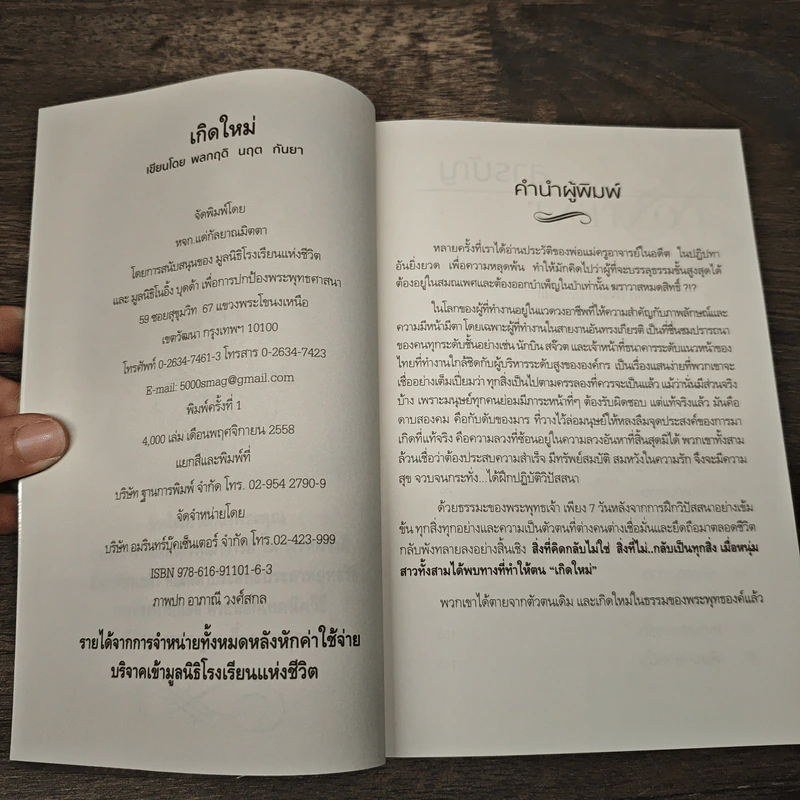 เกิดใหม่
เขียนโดย พลกฤติ นฤต กันยา
จัดพิมพ์โดย
หจก.แด่กัลยาณมิตตา
โดยการสนับสนุนของ มูลนิธิโรงเรียนแห่งชีวิต
และ มูลนิธิโนอิ้ง บุดด้า เพื่อการปกป้องพระพุทธศาสนา
59 ซอยสุขุมวิท 67 แขวงพระโขนงเหนือ
เขตวัฒนา กรุงเทพฯ 10100
โทรศัพท์ 0-2634-7461-3 โทรสาร 0-2634-7423
E-mail: 5000smag@gmail.com
พิมพ์ครั้งที่ 1
4,000 เล่ม เดือนพฤศจิกายน 2558
แยกสีและพิมพ์ที่
บริษัท ฐานการพิมพ์ จำกัด โทร. 02-954 2790-9
จัดจำหน่ายโดย
บริษัท อมรินทร์บุ๊คเซ็นเตอร์ จำกัด โทร.02-423-999
ISBN 978-616-91101-6-3
ภาพปก อาภาณี วงศ์สกล
รายได้จากการจำหน่ายทั้งหมดหลังหักค่าใช้จ่าย
บริจาคเข้ามูลนิธิโรงเรียนแห่งชีวิต
คำนำผู้พิมพ์
หลายครั้งที่เราได้อ่านประวัติของพ่อแม่ครูอาจารย์ในอดีต ในปฏิปทา
อันยิ่งยวด เพื่อความหลุดพ้น ทำให้มักคิดไปว่าผู้ที่จะบรรลุธรรมขั้นสูงสุดได้
ต้องอยู่ในสมณเพศและต้องออกบำเพ็ญในป่าเท่านั้น ฆราวาสหมดสิทธิ์ ?!?
ในโลกของผู้ที่ทำงานอยู่ในแวดวงอาชีพที่ให้ความสำคัญกับภาพลักษณ์และ
ความมีหน้ามีตา โดยเฉพาะผู้ที่ทำงานในสายงานอันทรงเกียรติ เป็นที่ชื่นชมปรารถนา
ของคนทุกระดับชั้นอย่างเช่น นักบิน สจ๊วต และเจ้าหน้าที่ธนาคารระดับแนวหน้าของ
ไทยที่ทำงานใกล้ชิดกับผู้บริหารระดับสูงขององค์กร เป็นเรื่องแสนง่ายที่พวกเขาจะ
เชื่ออย่างเต็มเปี่ยมว่า ทุกสิ่งเป็นไปตามครรลองที่ควรจะเป็นแล้ว แม้ว่านั่นมีส่วนจริง
บ้าง เพราะมนุษย์ทุกคนย่อมมีภาระหน้าที่ๆ ต้องรับผิดชอบ แต่แท้จริงแล้ว มันคือ
ดาบสองคม คือกับดับของมาร ที่วางไว้ล่อมนุษย์ให้หลงลืมจุดประสงค์ของการมา
เกิดที่แท้จริง คือความลวงที่ซ้อนอยู่ในความลวงอันหาที่สิ้นสุดมิได้ พวกเขาทั้งสาม
ล้วนเชื่อว่าต้องประสบความสำเร็จ มีทรัพย์สมบัติ สมหวังในความรัก จึงจะมีความ
สุข จวบจนกระทั่ง...ได้ฝึกปฏิบัติวิปัสสนา
ด้วยธรรมะของพระพุทธเจ้า เพียง 7 วันหลังจากการฝึกวิปัสสนาอย่างเข้ม
ข้น ทุกสิ่งทุกอย่างและความเป็นตัวตนที่ต่างคนต่างเชื่อมั่นและยึดถือมาตลอดชีวิต
กลับพังทลายลงอย่างสิ้นเชิง สิ่งที่คิดกลับไม่ใช่ สิ่งที่ไม่..กลับเป็นทุกสิ่ง เมื่อหนุ่ม
สาวทั้งสามได้พบทางที่ทำให้ตน “เกิดใหม่”
พวกเขาได้ตายจากตัวตนเดิม และเกิดใหม่ในธรรมของพระพุทธองค์แล้ว